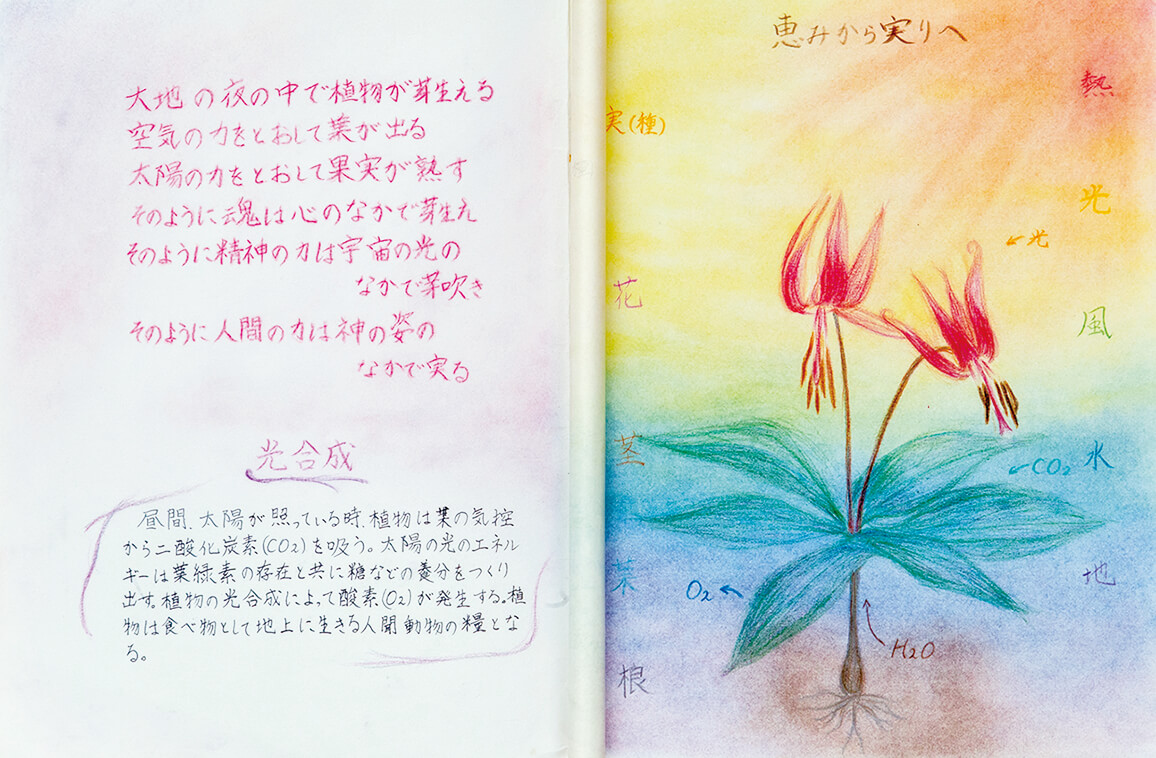 大地の夜の中で植物が芽生える
空気の力をとおして葉が出る
太陽の力をとおして果実が熟す
そのように魂は心のなかで芽生え
そのように精神の力は宇宙の光の
なかで芽吹き
そのように人間の力は神の姿の
なかで実る
光合成
昼間、太陽が照っている時、植物は葉の気控
から二酸化炭素(CO2)を吸う。太陽の光のエネル
ギーは葉緑素の存在と共に糖などの養分をつくり
出す。植物の光合成によって酸素(O2)が発生する。植
物は食べ物として地上に生きる人間動物の糧とな
る。
恵みから実りへ
実(種)
花
茎
葉
根
熱
光
風
水
地
←光
←CO2
O2←
H2O